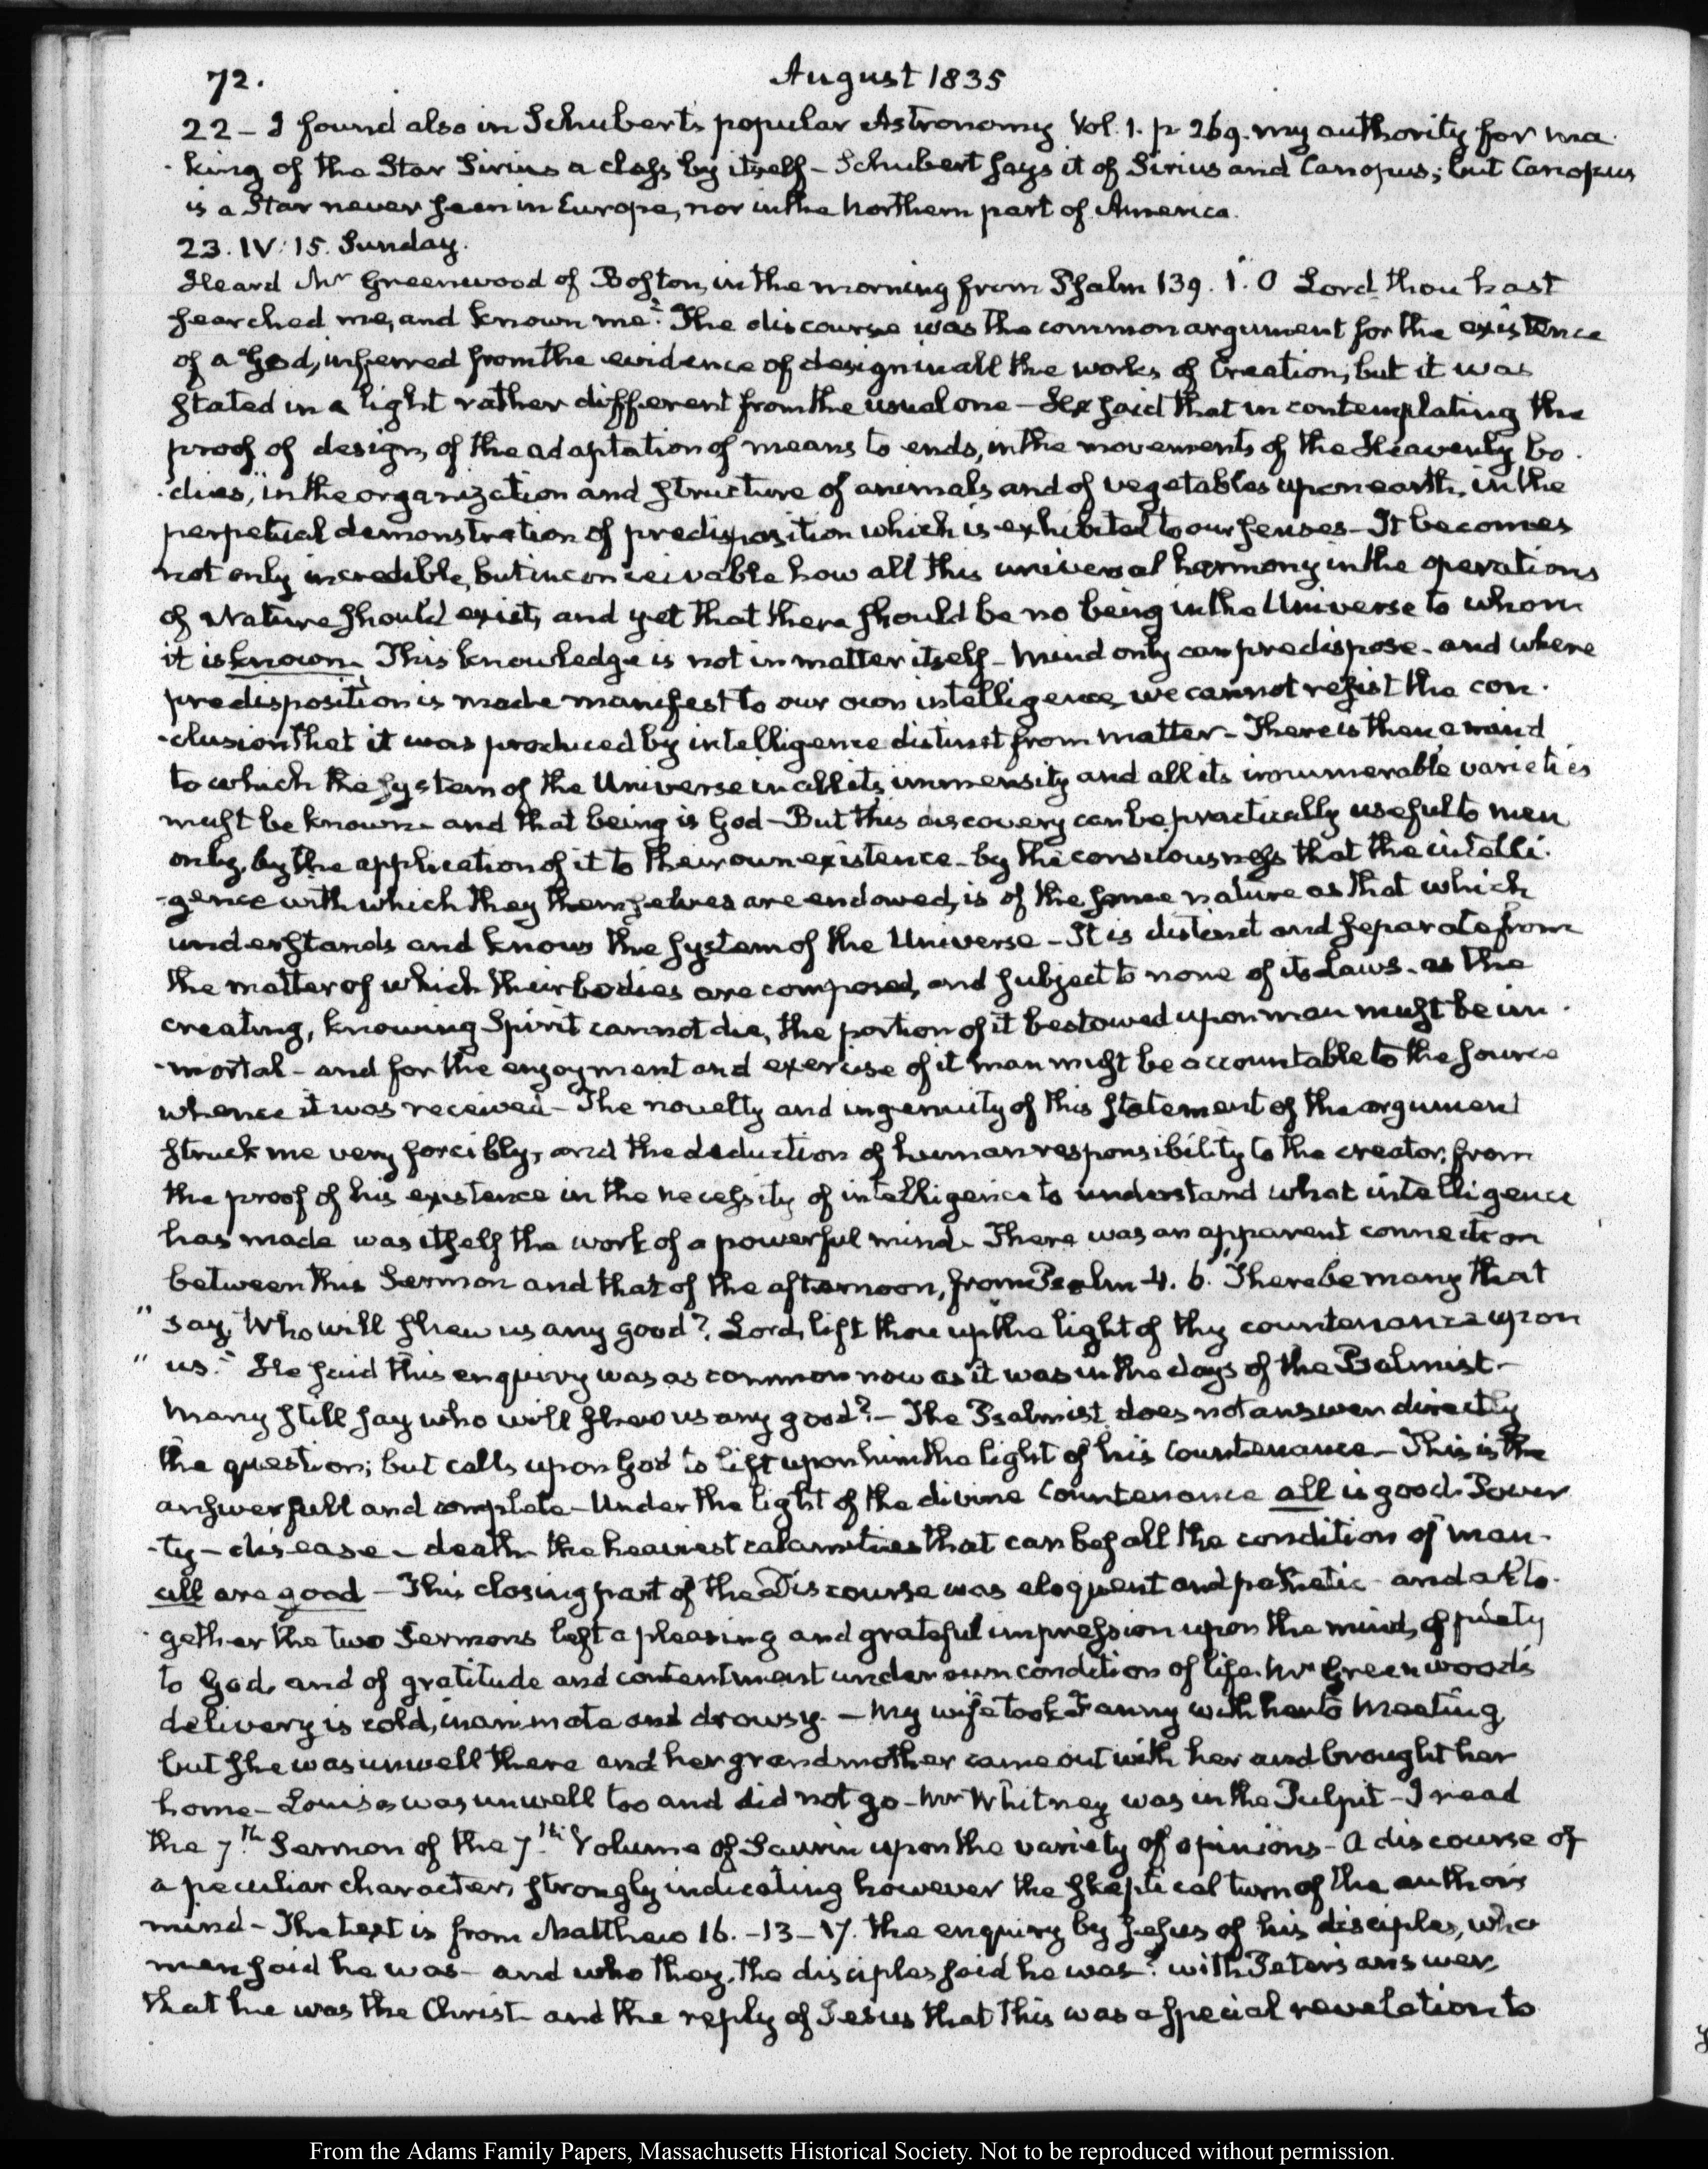 72.
August 1835
22 - I found also in Schubert's popular Astronomy Vol. 1. p 269. my authority for ma-
-king of the Star Sirius a class by itself - Schubert says it of Sirius and Canopus; but Canopus
is a Star never seen in Europe, nor in the Northern part of America.
23. IV: 15. Sunday.
Heard Mr Greenwood of Boston, in the morning from Psalm 139. 1. "O Lord thou hast
searched me, and known me." The discourse was the common argument for the existence
of a God, inferred from the evidence of design in all the works of Creation, but it was
stated in a light rather different from the usual one - He said that in contemplating the
proof of design, of the adaptation of means to ends, in the movements of the Heavenly bo-
-dies, in the organization and structure of animals and of vegetables upon earth, in the
perpetual demonstration of predisposition which is exhibited to our senses - It becomes
not only incredible, but inconceivable how all this universal harmony in the operations
of Nature should exist, and yet that there should be no being in the Universe to whom
it is known. This knowledge is not in matter itself - Mind only can predispose - and where
predisposition is made manifest to our own intelligence, we cannot resist the con-
-clusion that it was produced by intelligence distinct from matter - There is then a mind
to which the system of the Universe in all its immensity and all its innumerable varieties
must be known - and that being is God - But this discovery can be practically useful to men
only, by the application of it to their own existence - by the consciousness that the intelli-
-gence with which they themselves are endowed, is of the same nature as that which
understands and knows the system of the Universe - It is distinct and separate from
the matter of which their bodies are composed, and subject to none of its Laws - as the
creating, knowing Spirit cannot die, the portion of it bestowed upon man must be im-
-mortal - and for the enjoyment and exercise of it man must be accountable to the source
whence it was received - The novelty and ingenuity of this statement of the argument
struck me very forcibly, and the deduction of human responsibility to the creator, from
the proof of his existence in the necessity of intelligence to understand what intelligence
has made was itself the work of a powerful mind. There was an apparent connection
between this Sermon and that of the afternoon, from Psalm 4. 6. "There be many that
" say, Who will shew us any good? Lord, lift thou up the light of thy countenance upon
" us." He said this enquiry was as common now as it was in the days of the Psalmist -
Many still say who will shew us any good? - The Psalmist does not answer directly
the question; but calls upon God to lift upon him the light of his Countenance - This is the
answer full and complete - Under the light of the divine Countenance all is good. Pover-
-ty - disease - death - the heaviest calamities that can befall the condition of man -
all are good - This closing part of the Discourse was eloquent and pathetic - and alto-
-gether the two Sermons left a pleasing and grateful impression upon the mind, of piety
to God, and of gratitude and contentment under our condition of life. Mr Greenwood's
delivery is cold, inanimate and drowsy. - My wife took Fanny with her to Meeting
but she was unwell there and her grandmother came out with her and brought her
home - Louisa was unwell too and did not go - Mr Whitney was in the Pulpit - I read
the 7th Sermon of the 7th Volume of Saurin upon the variety of opinions - A discourse of
a peculiar character, strongly indicating however the skeptical turn of the author's
mind - The text is from Matthew 16. -13-17. the enquiry by Jesus of his disciples, who
men said he was - and who they, the disciples said he was? with Peter's answer,
that he was the Christ - and the reply of Jesus that this was a special revelation to
From the Adams Family Papers, Massachusetts Historical Society. Not to be reproduced without permission.